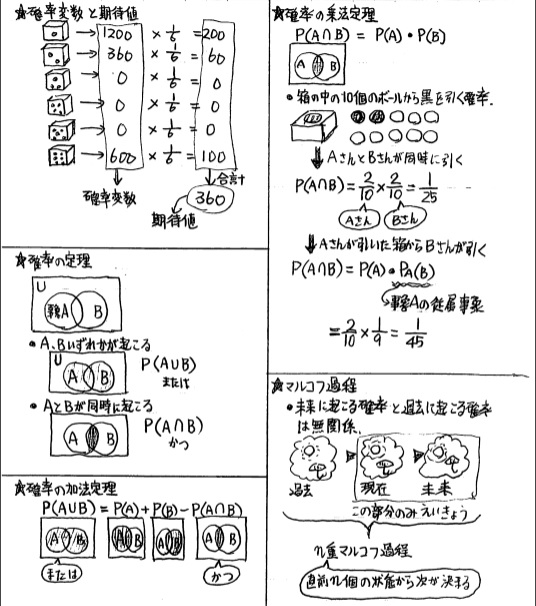 ☆確率変数と期待値
→ 1200 × 1/6 = 200
→ 360 × 1/6 = 60
→ 0 × 1/6 = 0
→ 0 × 1/6 = 0
→ 0 × 1/6 = 0
→ 600 × 1/6 = 100
確率変数
合計
360
期待値
☆確率の定理
U
事象A B
・A、Bいずれかが起こる
U
A B
P(A∪B)
または
・AとBが同時に起こる
A B
P(A∩B)
かつ
☆確率の加法定理
P(A∪B) = P(A) + P(B) − P(A∩B)
A B
A B
A B
A B
または
かつ
☆確率の乗法定理
P(A∩B) = P(A)・P(B)
A B
・箱の中の10個のボールから黒を引く確率.
↓AさんとBさんが同時に引く
P(A∩B) = 2/10 × 2/10 = 1/25
Aさん Bさん
↓Aさんが引いた箱からBさんが引く
P(A∩B) = P(A)・PA(B)
事象Aの従属事象
= 2/10 × 1/9 = 1/45
☆マルコフ過程
・未来に起こる確率と過去に起こる確率
は無関係.
過去 現在 未来
この部分のみえいきょう
n重マルコフ過程
直前n個の状態から次が決まる